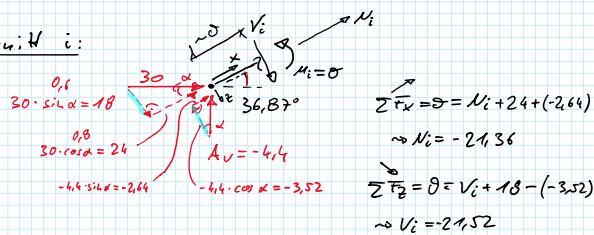 nitt i:
~0
Vi
Ni
x
z
Mi=0
30
α
0,6
30·sinα=18
36,87°
0,8
30·cosα=24
α
Av=-4,4
-4,4·sinα=-2,64
-4,4·cosα=-3,52
ΣFx=0=Ni+24+(-2,64)
~> Ni=-21,36
ΣFz=0=Vi+18-(-3,52)
~> Vi=-21,52